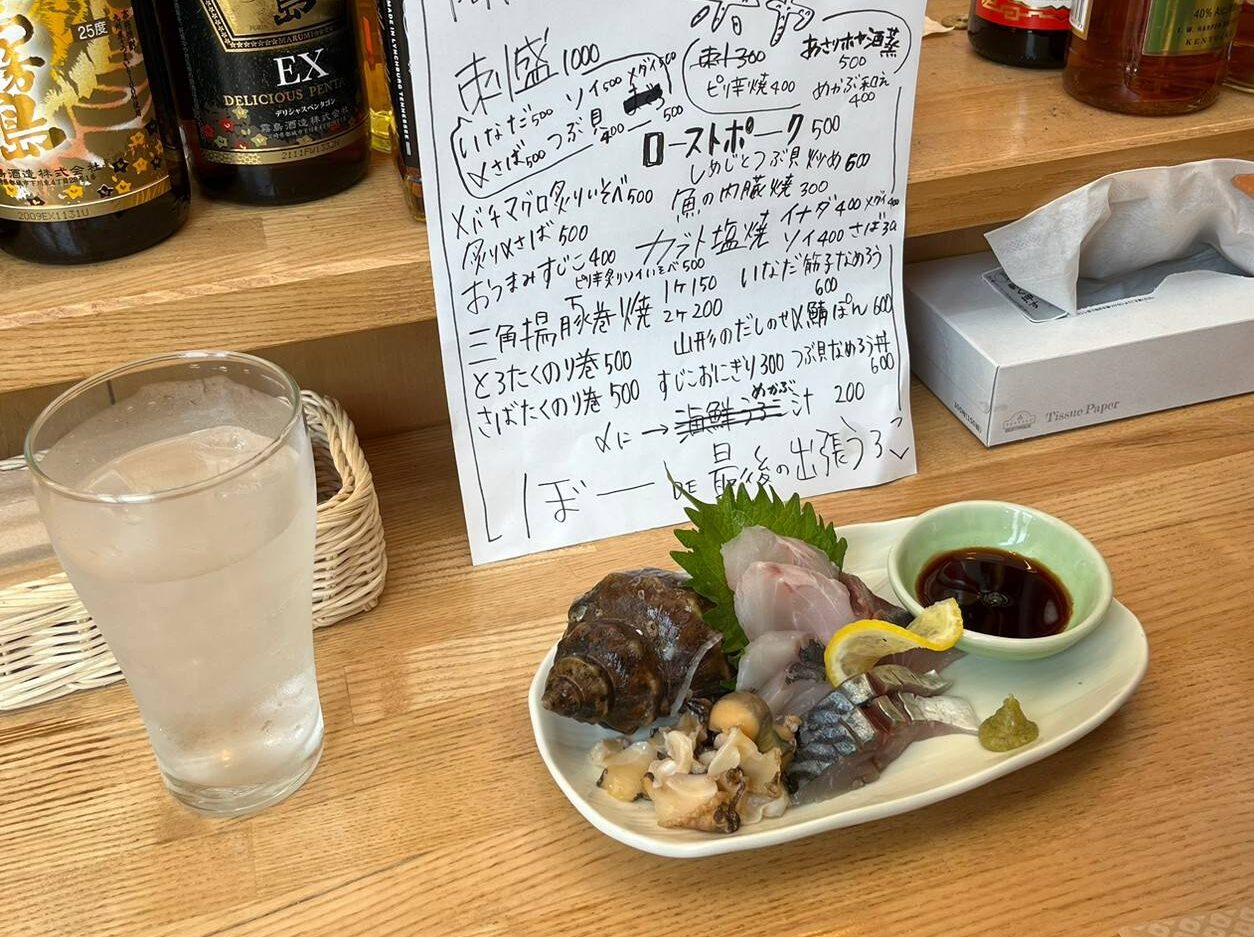 25度
霧島
島酒造株式会社
2009EX1131U
島
MARUMI
EX
DELICIOUS PENTA
デリシャスペンタゴン
霧島酒造株式会社
MADE IN LYNCHBURG TENNESSEE
40% AL
I. W. HARPER
KEN
刺盛 1000
いなだ500 ソイ500 メダイ500
〆さば500 つぶ貝 400〜500
刺300
ピリ辛焼400
あさりホヤ酒蒸 500
めかぶ和え 400
ローストポーク 500
しめじとつぶ貝炒め 600
メバチマグロ炙りいそべ500
魚の内臓焼 300
炙り〆さば 500
カブト塩焼 イナダ400 メダイ400
ソイ400 さば30
おつまみすじこ400
ピリ辛炙りソイいそべ500
三角揚豚巻き焼 1ケ150 2ケ200
いなだ筋子なめろう 600
とろたくのり巻500
山形のだしのせ〆鯖ぽん600
さばたくのり巻500
すじこおにぎり300
つぶ貝なめろう丼 600
〆に→海鮮 めかぶ汁 200
ぼー DE 最後の出張うろこ
Tissue Paper